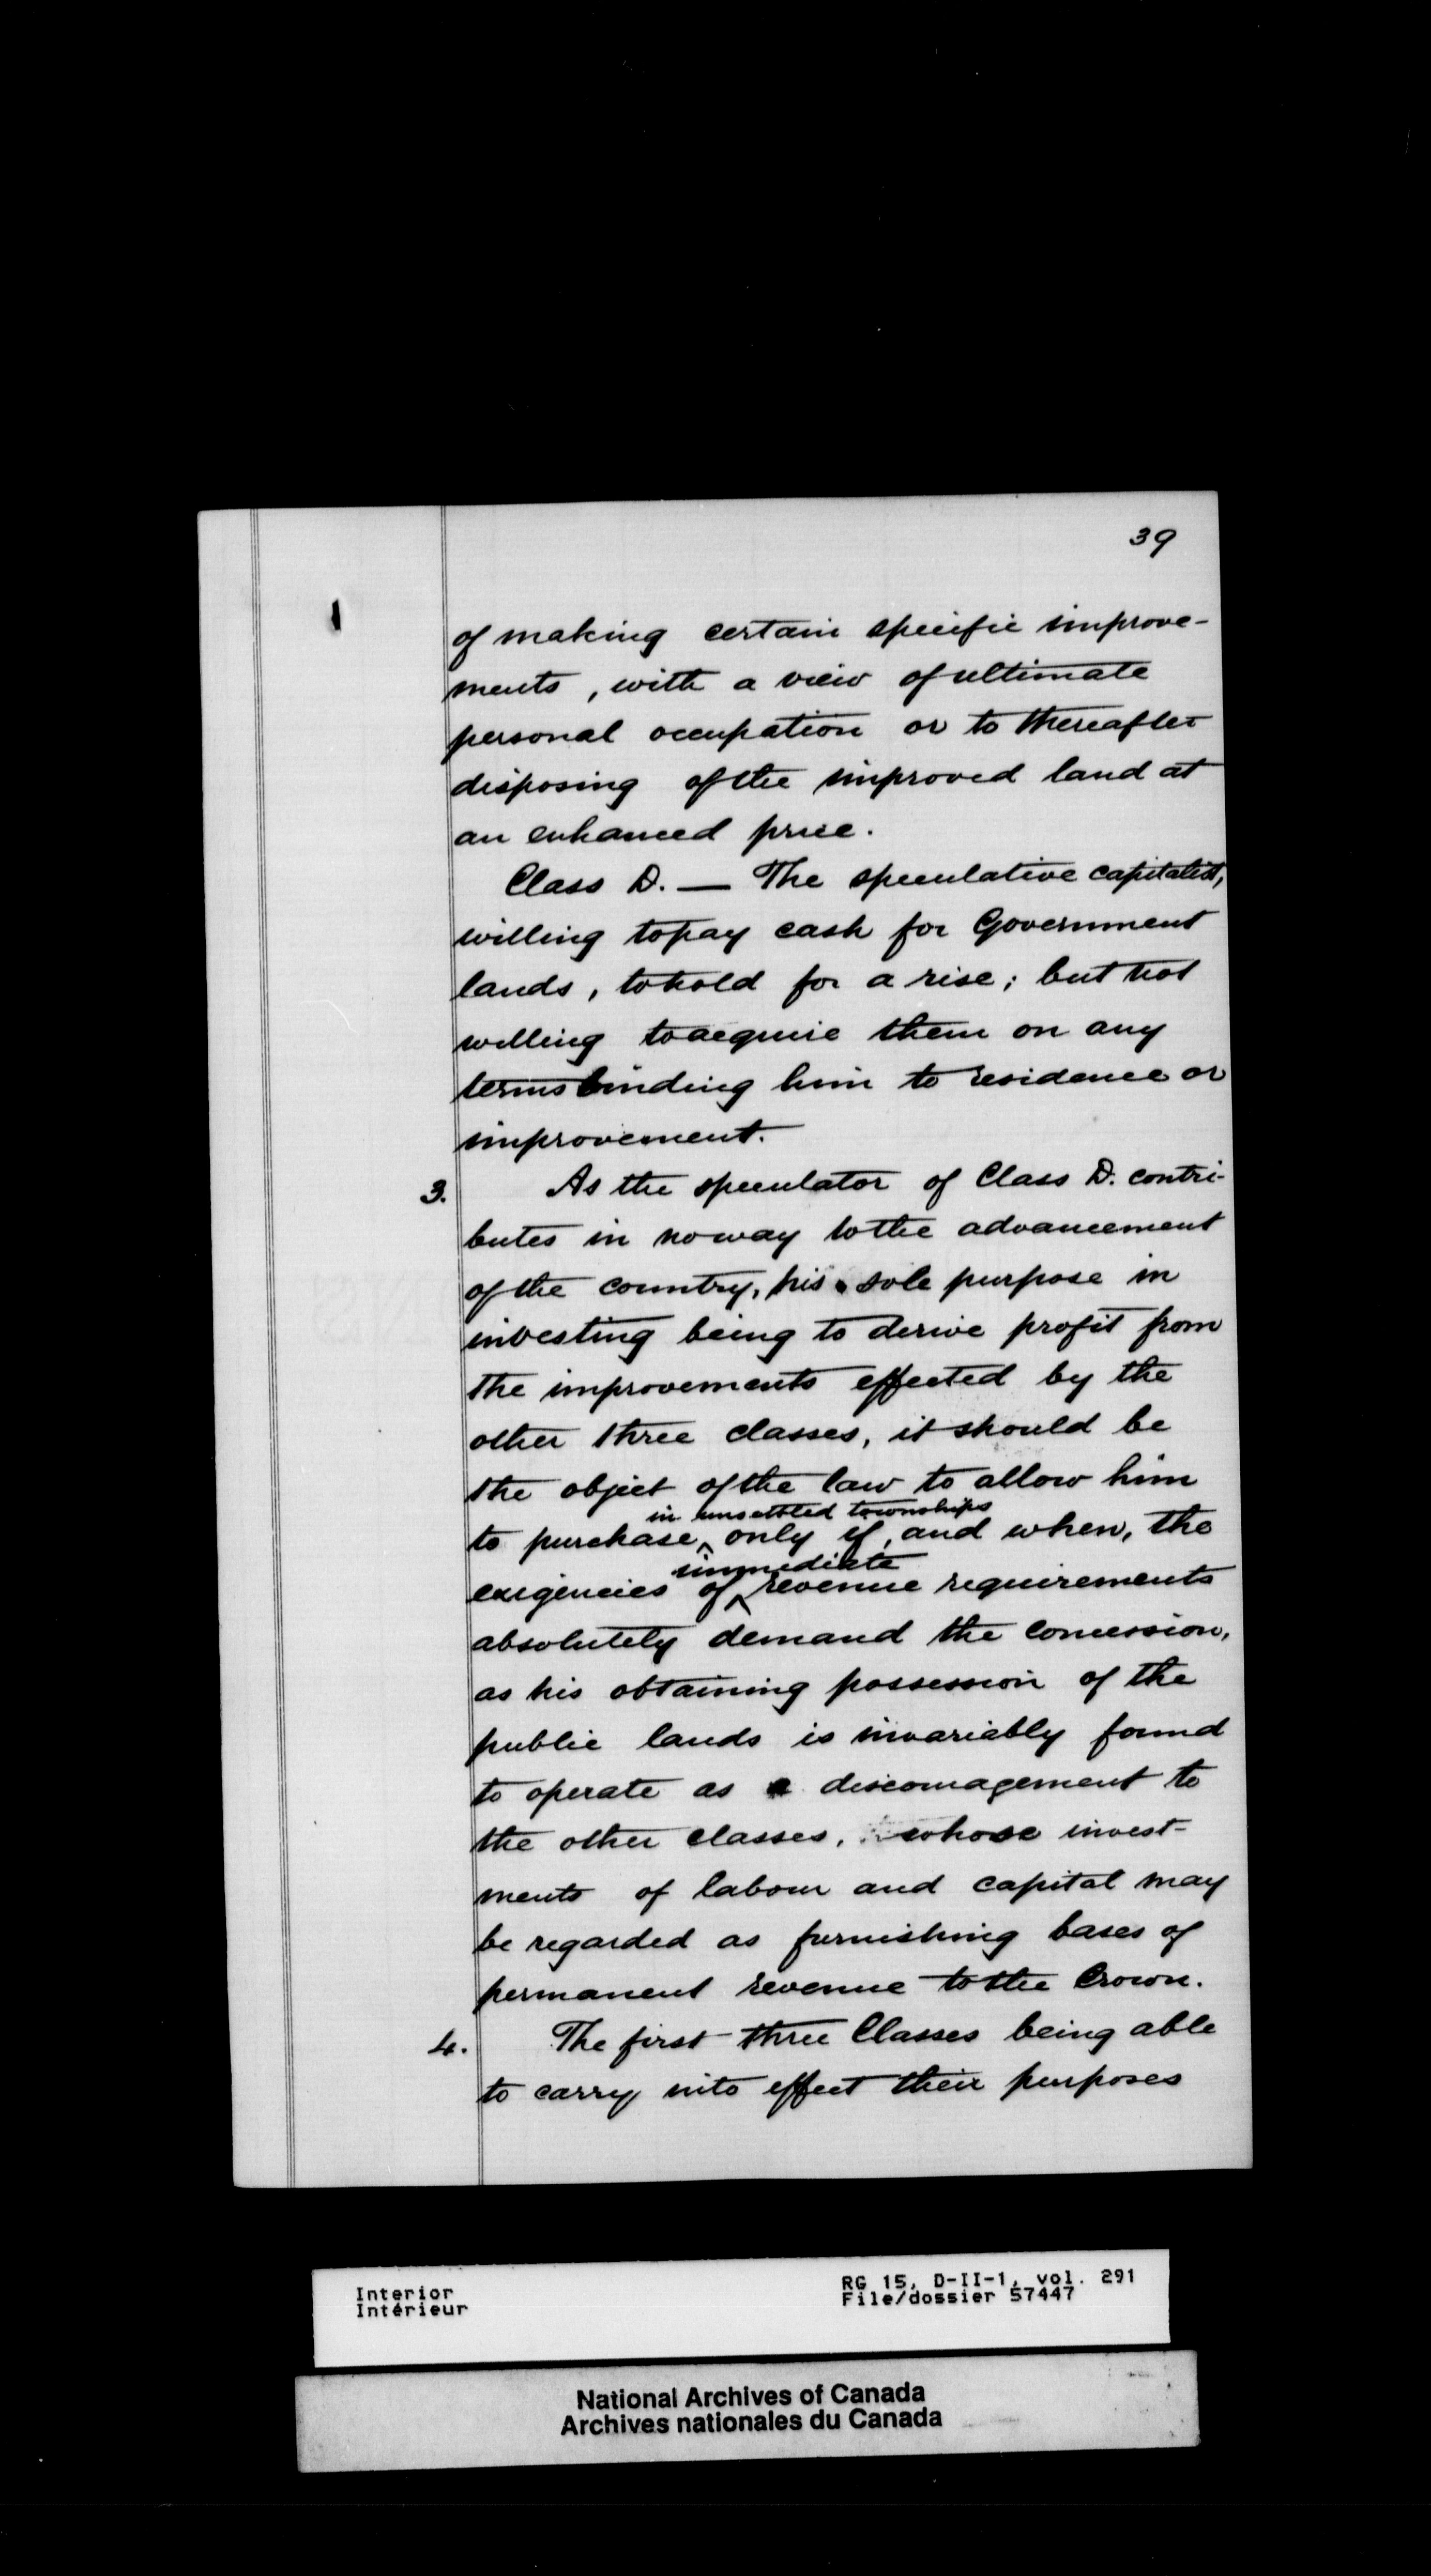 39
of making certain specific improve-
ments, with a view of ultimate
personal occupation or to thereafter
disposing of the improved land at
an enhanced price.
Class D. — The speculative capitalist,
willing to pay cash for Government
lands, to hold for a rise; but not
willing to acquire them on any
terms binding him to residence or
improvement.
3. As the speculator of Class D. contri-
butes in no way to the advancement
of the country, his sole purpose in
investing being to derive profit from
the improvements effected by the
other three classes, it should be
the object of the law to allow him
in unsettled townships
to purchase ^ only if, and when, the
immediate
exigencies of ^ revenue requirements
absolutely demand the concession,
as his obtaining possession of the
public lands is invariably found
to operate as a discouragement to
the other classes, whose invest-
ments of labour and capital may
be regarded as furnishing bases of
permanent revenue to the Crown.
4. The first three Classes being able
to carry into effect their purposes
Interior
Intérieur
RG 15, D-II-1, vol. 291
File/dossier 57447
National Archives of Canada
Archives nationales du Canada